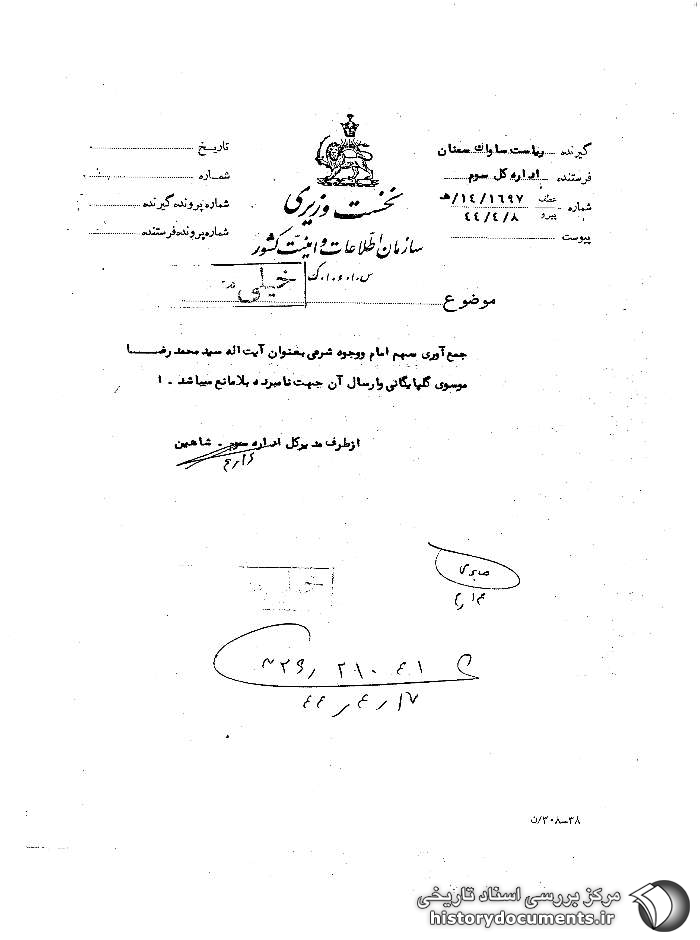 گیرنده ریاست ساواک سمنان
فرستنده اداره کل سوم
شماره عطف ۱۴/۱۶۹۷/هـ
پیرو ۴۴/۴/۸
پیوست
نخست وزیری
سازمان اطلاعات و امنیت کشور
س.ا.و.ا.ک
تاریخ
شماره
شماره پرونده گیرنده
شماره پرونده فرستنده
خیلی
موضوع
جمع آوری سهم امام ووجوه شرعی بعنوان آیت اله سید محمد رضا
موسوی گلپایگانی وارسال آن جهت نامبرده بلامانع میباشد - ا
ازطرف مدیرکل اداره سوم - شاهین
صابری
۴۴/۴/۱۷
۳۸-۳۰۸/ن
مرکز بررسی اسناد تاریخی
historydocuments.ir